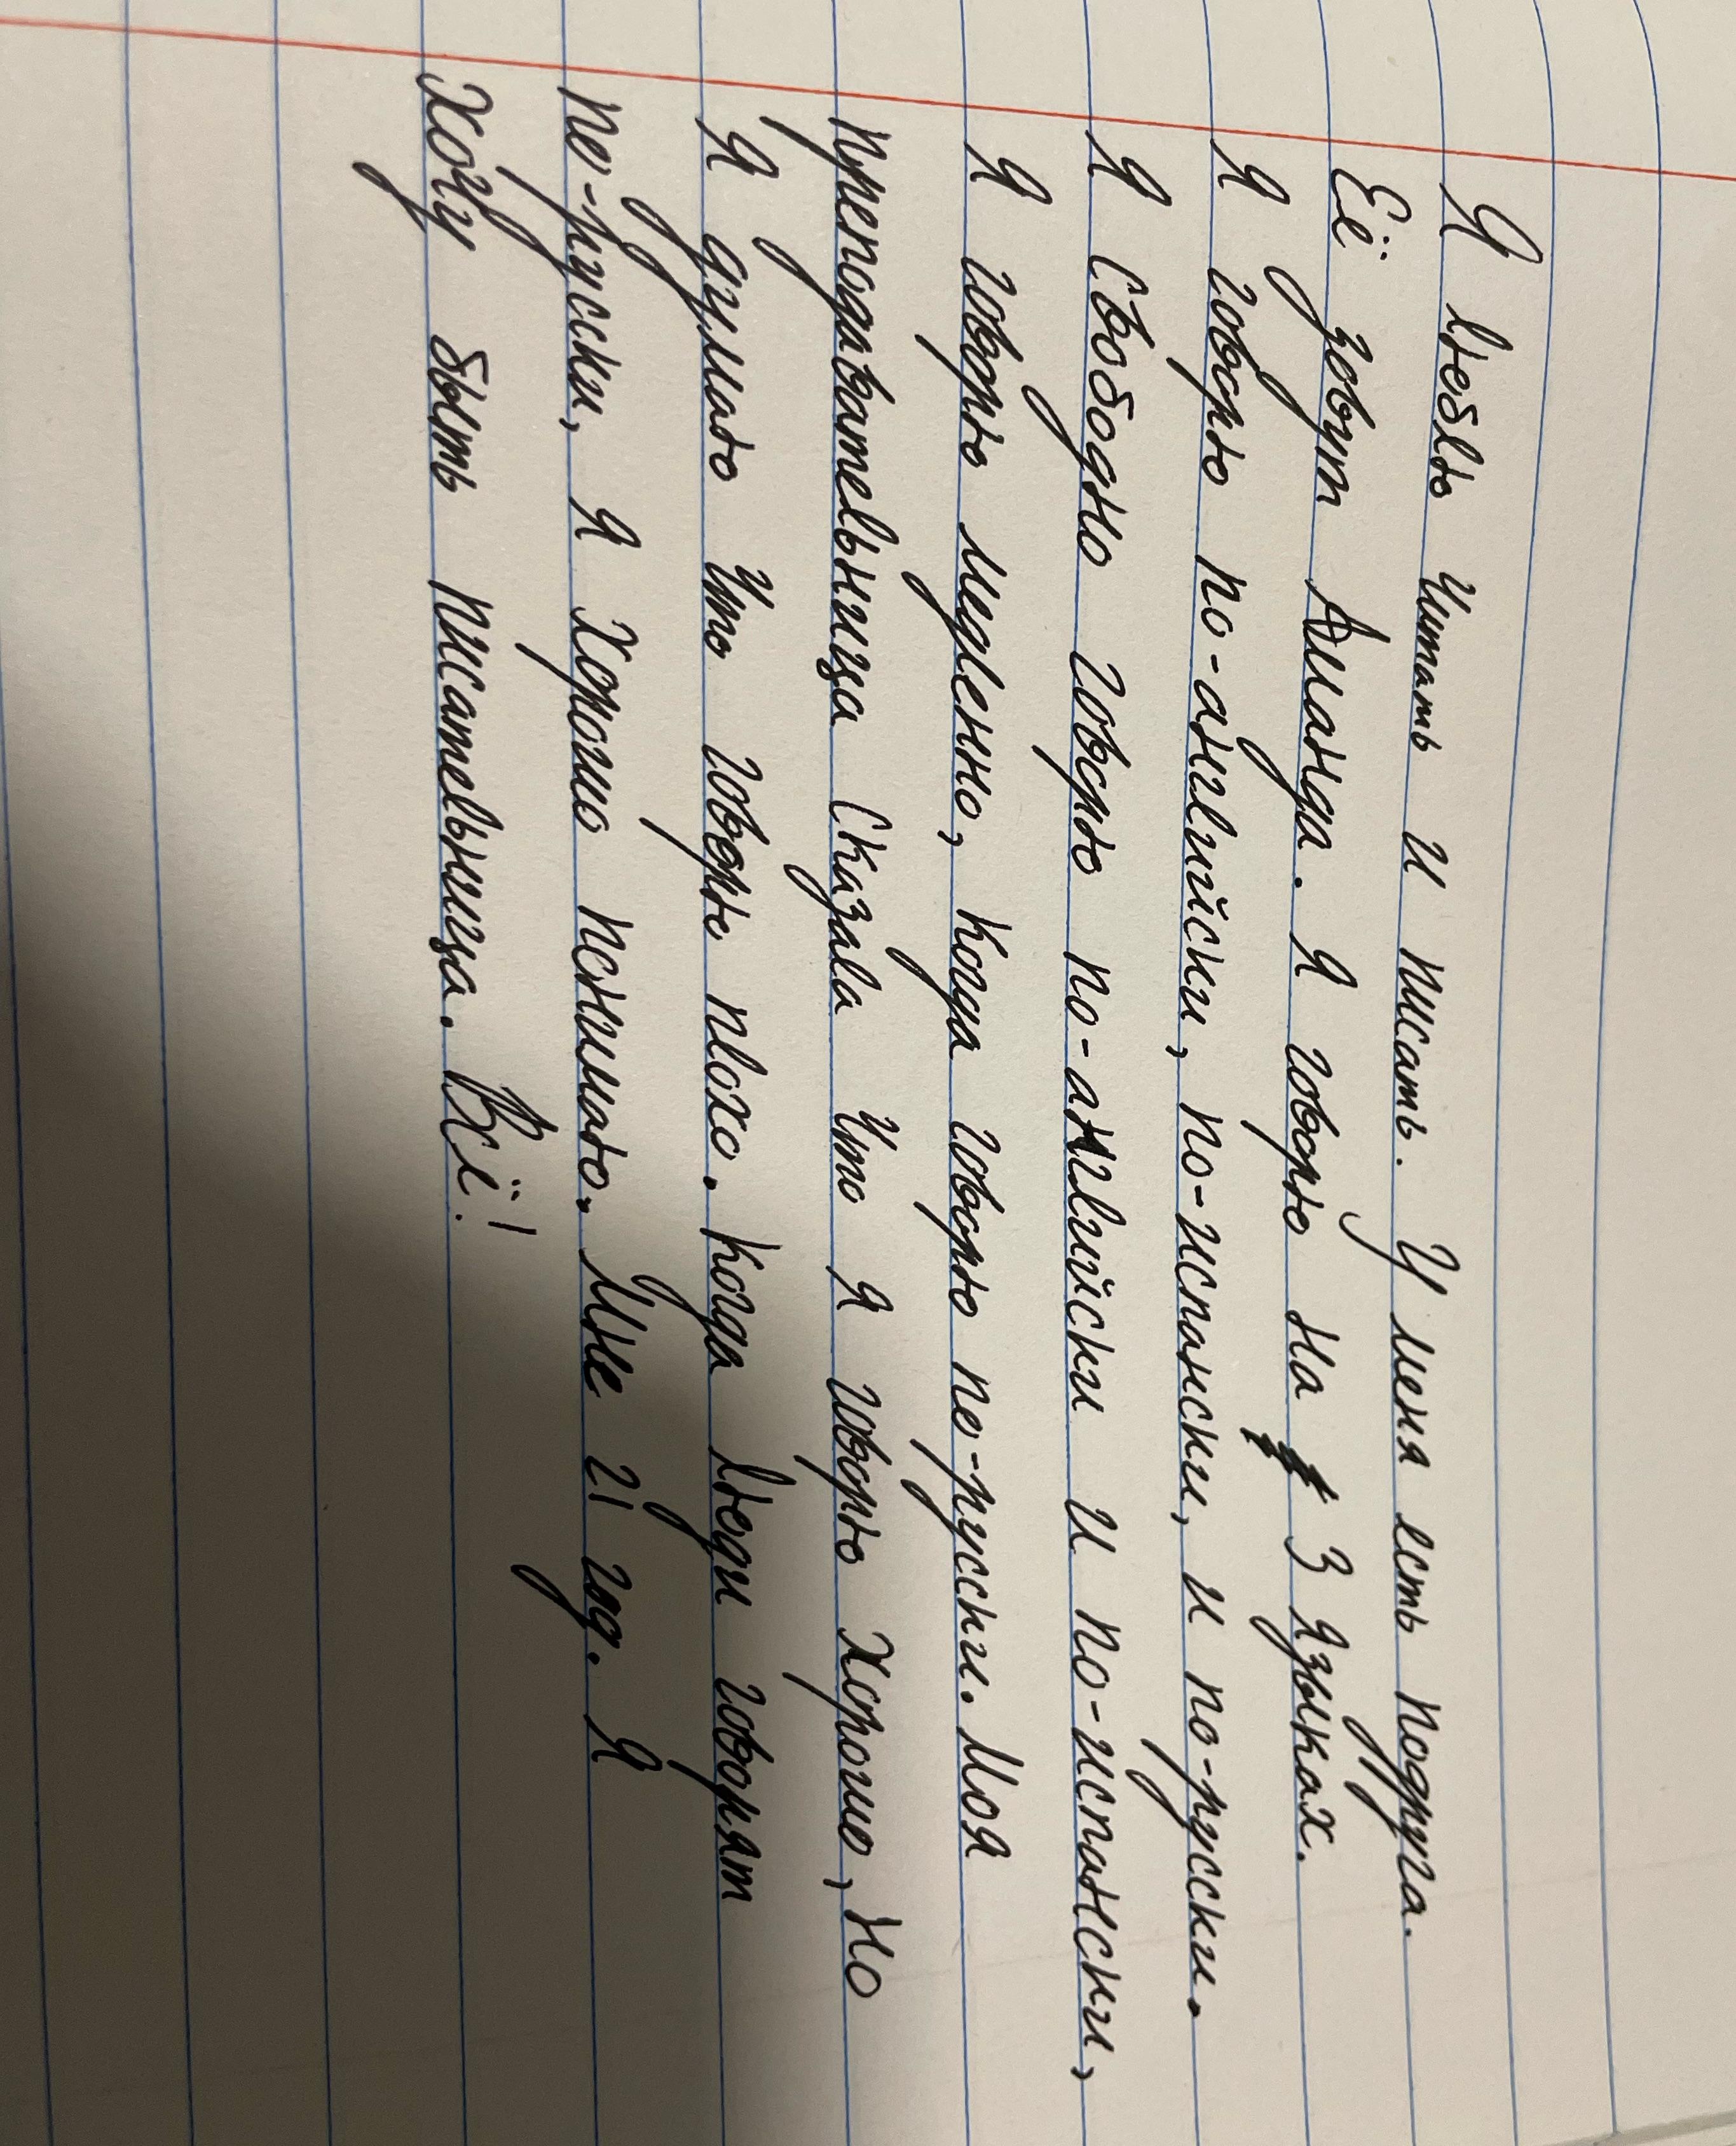 Я люблю читать и писать. У меня есть подруга.
Её зовут Аманда. Я говорю на 3 языках.
Я говорю по-английски, по-испански, и по-русски.
Я свободно говорю по-английски и по-испански,
Я говорю медленно, когда говорю по-русски. Моя
преподавательница сказала что я говорю хорошо, но
я думаю что говорю плохо. Когда люди говорят
по-русски, я хорошо понимаю. Мне 21 год. Я
хочу быть писательница. Всё!